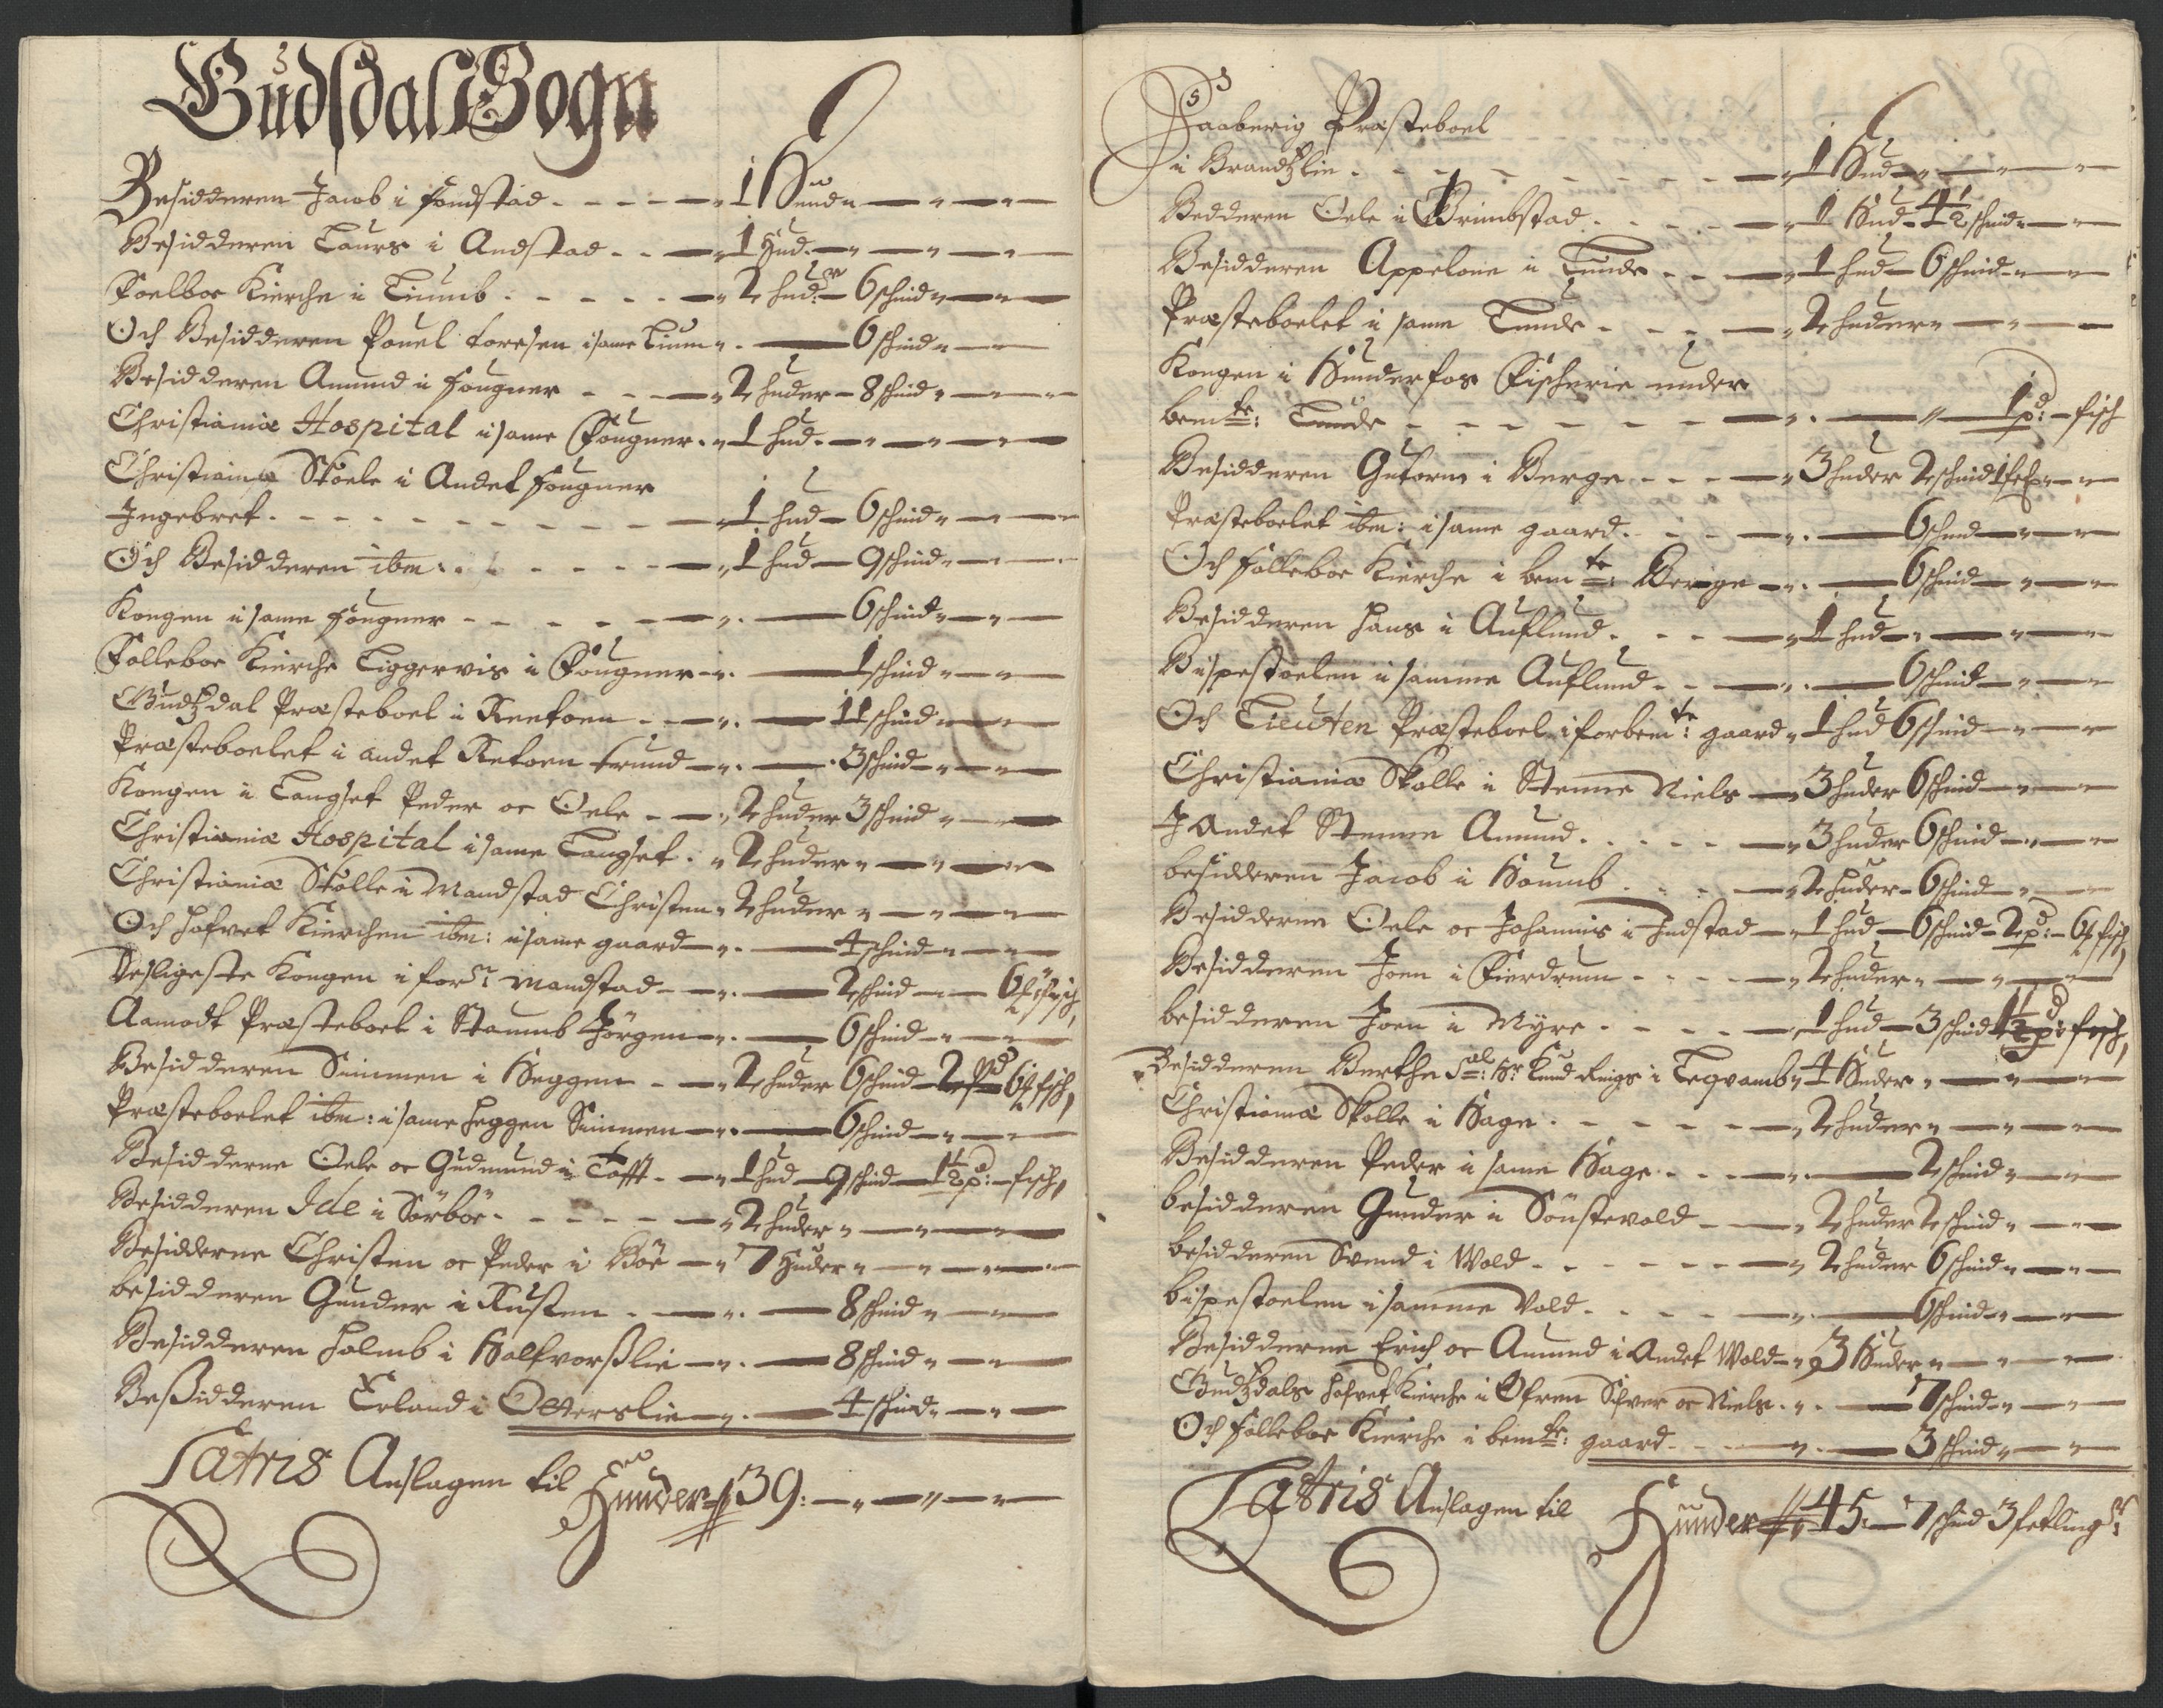 Gudsdals Sogn
Besidderen Jacob i fondstad - - - - 1 Hund
Besidderen Laurs i Andstad - - 1 Hud
Foelboe Kierche i Liumb - - - - - 2 hudr 6 schind
Och Besidderen Pouel toresen i same Lium - 6 schind
Besidderen Amund i fougner - - - 2 huder - 8 schind
Christianiæ Hospital i same Fougner - 1 hud
Christianiæ Skoele i Andet fougner
Ingebret - - - - - - - - 1 hud - 6 schind
Och Besidderen ibm: - - - - - 1 hud - 9 schind
Kongen i same fougner - - - - - 6 schind
Folleboe Kierche Liggervis i Fougner - 1 schind
Gudtzdal Præsteboel i Reetoen - - 11 schind
Præsteboelet i andet Retoen trund - 3 schind
Kongen i Langset Peder oc Oele - - 2 huder 3 schind
Christianiæ Hospital i same Langset - 2 huder
Christianiæ Skolle i Mandstad Christen 2 huder
Och hofvet Kierchen ibm: i same gaard - 4 schind
Desligeste Kongen i forne Mandstad - 2 schind - 6 fisch
Aamodt Præsteboel i Staumb Jörgen - 6 schind
Besidderen Simmen i Heggen - - 2 huder 6 schind 2 pd 6 fisch,
Præsteboelet ibm: i same heggen Simmen - 6 schind
Besidderne Oele oc Gudmund i Tofft - 1 hud - 9 schind - 1½ pd: - fisch,
Besidderen Ide i Sörböe - - - - - 2 huder
Besidderne Christen oc Peder i Böe - 7 Huder
besidderen Gunder i Rusten - 8 schind
Besidderen holmb i Halfvorßlie - 8 schind
Beßidderen Erland i Otterslie - 4 schind
Latris Anslagen til Hunder 39:
Faaberig Præsteboel
i Brandtzlie - - - - - - - 1 Hud
Bedderen Oele i Brimbstad - - - 1 Hud - 4½ schind
Besidderen Appelone i Lunde - - 1 hud - 6 schind
Præsteboelet i same Lunde - - - 2 huder
Kongen i Hunderfos Fischerie under
bemte: Lunde - - - - - - 1 pd: - fisch
Besidderen Gutorm i Berge - - - 3 huder 2 schind
Præsteboelet ibm: i same gaard - - - 6 schind
Och folleboe Kierche i bemte: Berige - 6 schind
Besidderen Hans i Auflund - - - 1 hud
Bispestoelen i samme Auflund - - 6 schind
Och Præsteboel i forbemte: gaard - 1 hud 6 schind
Christianiæ Skolle i Stenne Niels - 3 huder 6 schind
I Andet Stenne Amund - - - - 3 huder 6 schind
besidderen Jacob i Houmb - - - 2 huder - 6 schind
Besidderne Oele oc Johannis i Jndstad - 1 hud - 6 schind - 2 pd: - 6 fisch,
Besidderen Joen i Fierdrum - - - 2 huder
besidderen Joen i Myre - - - - 1 hud - 3 schind 1½ pd: fisch,
Besidderen Berthe Sal: Hr Knud i Legvamb 4 Huder
Christianiæ Skolle i Hage - - - - 2 huder
Besidderen Peder i same Hage - - - 2 schind
besidderen Gunder i Sönstevold - - 2 huder 2 schind
besidderen Svend i Wold - - - - - 2 huder 6 schind
bispestoelen i samme Vold - - - - 6 schind
Besidderne Erich oc Amund i Andet Wold - 3 Huder
Gudtzdals hofvet Kierche i Ofren Sifver oc Niels - 7 schind
Och folleboe Kierche i bemte: gaard - - 3 schind
Latris Anslagen til Hunder 45: - 7 schind 3 fetlingr: